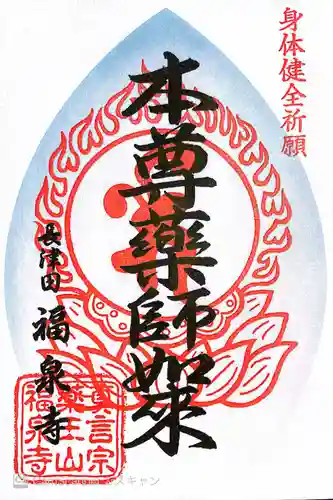 身体健全祈願
本尊藥師如来
長津田
福泉寺
真言宗
薬王山
福泉寺
スキャン